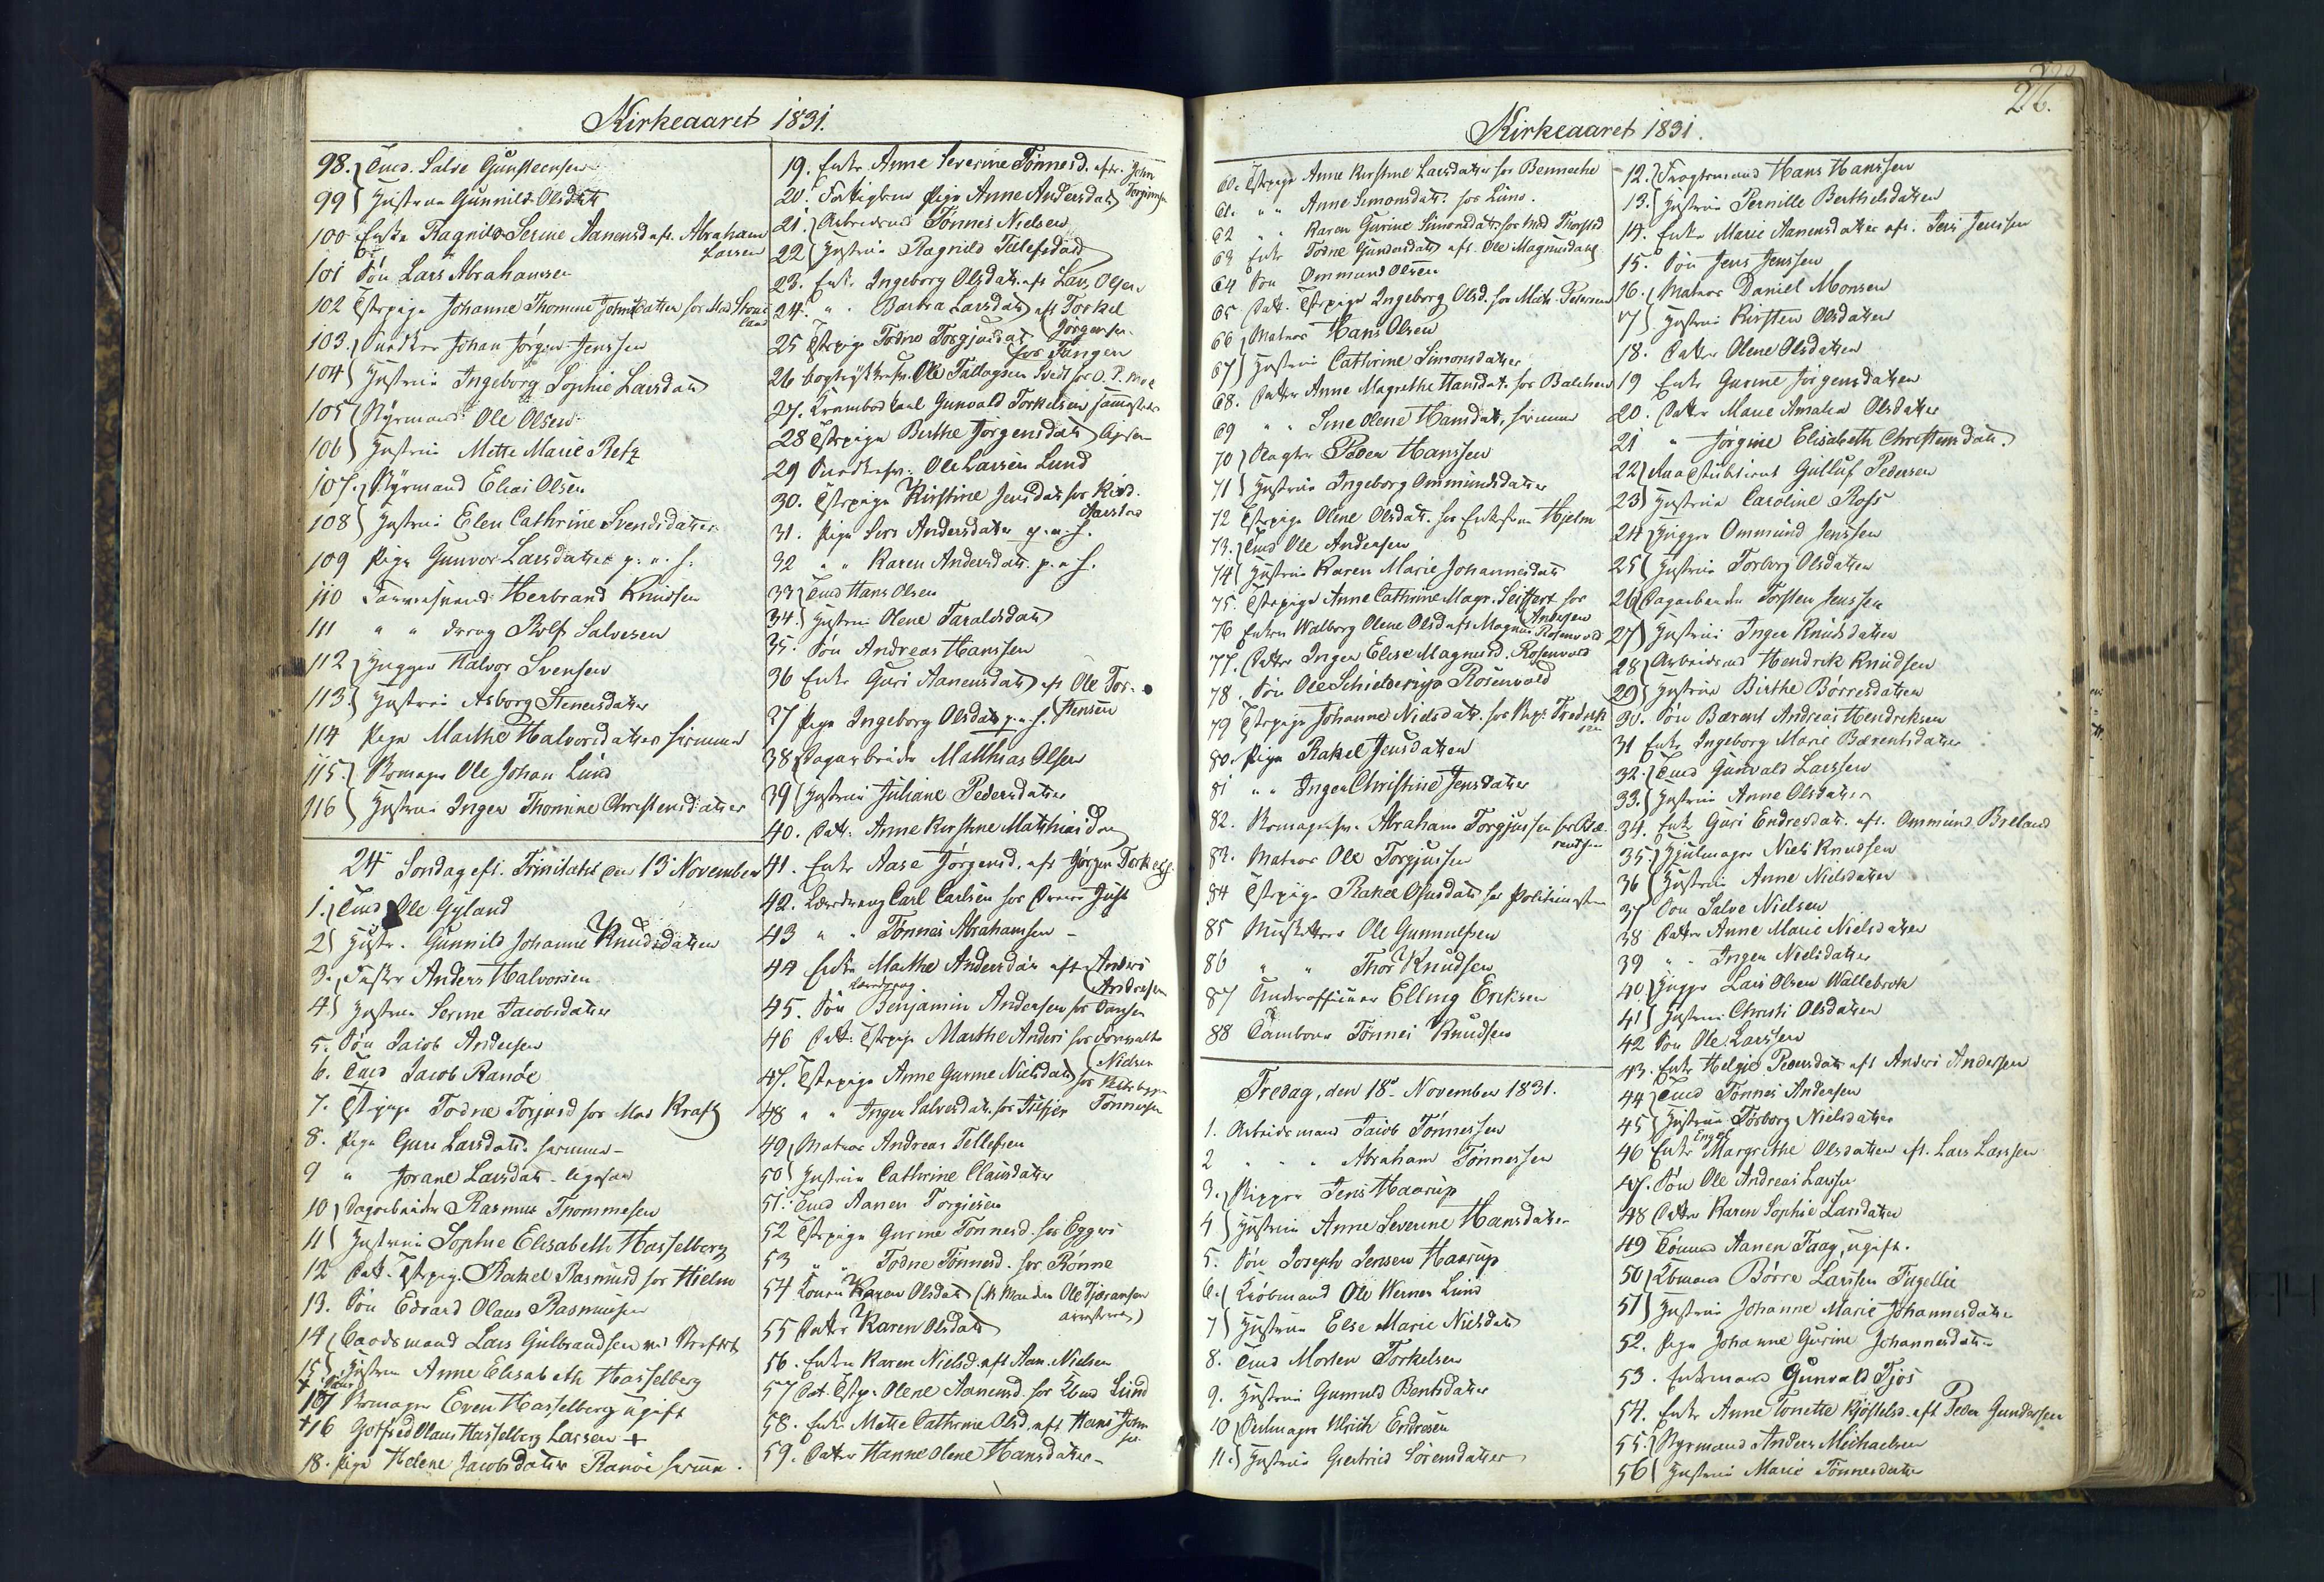 Kirkeaaret 1831.
98. Tmd. Salve Gunsteensen
99 Hustrue Gunnild Olsdatt
100 Enke Ragnild Serine Aanensd eft. Abraham
Larsen
101 Søn Lars Abrahamsen
102 Tstpige Johanne Thomine Johnsdatter for Mad
103. Snedker Johan Jørgen Jenssen
104 Hustrue Ingeborg Sophie Larsdatt
105 Styrmand Ole Olsen
106 Hustrue Mette Marie Retz
107. Styrmand Elias Olsen
108 Hustrue Elen Cathrine Svendsdatter
109 Pige Gunvor Larsdatter p. a. h.
110 Herbrand Knudsen
111 " " dreng Rolf Salvesen
112 Halvor Svensen
113 Hustrue Asborg Stenersdatter
114 Pige Marthe Halvorsdatter hiemme
115. Skomager Ole Johan Lund
116 Hustrue Inger Thomine Christensdatter
24 Søndag eft. Trinitatis den 13 November
1. Tmd Ole Gyland
2 Hustr. Gunnild Johanne Knudsdatter
3. Anders Halvorsen
4. Hustrue Serine Jacobsdatter
5. Søn Jacob Andersen
6. Tmd Jacob Ranøe
7. Tstpige Todne Torjusd for Mad Kraft
8. Pige Guri Larsdatt. hiemme
9 " Jorane Larsdatt. ligesaa
10 Dagarbeider Rasmus Thommesen
11 Hustrue Sophie Elisabeth Hasselberg
12 Datt. Tstpig. Rakel Rasmusd for Hielm
13. Søn Edvard Olaus Rasmussen
14 Lars Gulbrandsen
15 Hustrue Anne Elisabeth Hasselberg
+
17 Skomager Even Hasselberg ugift
+16 Gotfred Olaus Hasselberg Larsen +
18. Pige Helene Jacobsdatter Ranøe hiemme.
19. Enke Anne Severine Tønnesd. eft. John
Torgimsen
20. Pige Anne Andersdatt
21. Arbeidsmd Tønnes Nielsen
22 Hustrue Ragnild Tellefsdatt
23. Enke Ingeborg Olsdatt. eft Lars Olsen
24. " " Barbra Larsdatt eft Torkel
Jørgensen
25 Tstpige Todne Torgjusdat
for Tangen
26 Ole Tallagsen Svedt for O. P. Moe
27. Gunvold Torkelsen sammesteds
28 Tstpige Birthe Jørgensdatt
29 Snedkersv. Ole Larsen Lund
30. Tstpige Kirstine Jensdat for
31. Pige Siri Andersdatter p. a. h.
32 " " Karen Andersdatt. p. a h.
33 Tmd Hans Olsen
34. Hustrue Olene Taraldsdatt
35. Søn Andreas Hanssen
36 Enke Guri Aanensdatt eft Ole Tor-
stensen
37 Pige Ingeborg Olsdatt p. a. h.
38 Dagarbeider Matthias Olsen
39 Hustrue Juliane Pedersdatter
40. Datt. Anne Kirstine Matthiasdatt
41. Enke Aase Jørgensd. eft Jørgen Torkels
42. Læredreng Carl Carlsen for Just
43 " " Tønnes Abrahamsen
44 Enke Marthe Andersdatt eft Anders
Andresen
45. Søn Læredreng Benjamin Andersen for
46 Datt. Tstpige Marthe Anders for
Nielsen
47. Tstpige Anne Gurine Nielsdatt for
Tønnesen
48 " " Inger Salvesdatt. for
49 Matros Andreas Tellefsen
50 Hustrue Cathrine Clausdatter
51. Tmd Aanen Torgiesen
52 Tstpige Gurine Tønnesd. for Eggers
53 " " Todne Tønnesd. for Rønne
54 Konen Karen Olsdatt (Manden Ole
arresteret)
55 Datter Karen Olsdatt
56. Enken Karen Nielsd. eft Aan. Nielsen
57 Dat. Tstp. Olene Aanensd. for Lund
58. Enke Mette Cathrine Olsd. eft Hans John
sen
59. Datter Hanne Olene Hansdatter
Kirkeaaret 1831.
226.
60. Tstpige Anne Kirstine Larsdatter for Benneche
61. " " Anne Simonsdatt. for Lund.
62 " " Karen Gurine Simonsdatt. for Md Thorsted
63 Enke Todne Gundersdatt eft. Ole Magnusdahl
64 Søn Ommund Olsen
65 Datt. Tstpige Ingeborg Olsd. for Mich. Petersen
66 Matros Hans Olsen
67 Hustrue Cathrine Simonsdatter
68. Datter Anne Magrethe Hansdatt. for Balchen
69 " " Sine Olene Hansdatt. hiemme
70 Slagter Peder Hanssen
71 Hustrue Ingeborg Ommundsdatter
72 Tstpige Olene Olsdatt. for Hjelm
73. Tmd Ole Andersen
74 Hustrue Karen Marie Johannesdatt
75. Tstpige Anne Cathrine Magr. Seiffert for
Andersen
76 Enken Walborg Olene Olsd eft Magnus Rosenvold
77. Datter Inger Elise Magnusd. Rosenvold
78. Søn Ole Schielderup Rosenvold
79 Tstpige Johanne Nielsdatt. for Fredrik
sen
80. Pige Rakel Jensdatter
81 " " Inger Christine Jensdatter
82. Skomagersv. Abraham Torgjussen for
83. Matros Ole Torgjussen
84 Tstpige Rakel for Politimesteren
85 Musketeer Ole Gunnulfsen
86 " " Thor Knudsen
87 Underofficeer Elling Ericksen
88 Tambour Tønnes Knudsen
Fredag, den 18de November 1831.
1. Arbeidsmand Jacob Tønnessen
2 " " Abraham Tønnessen
3. Skipper Jens Haarup
4 Hustrue Anne Severine Hansdatter
5. Søn Joseph Jensen Haarup
6. Kiøbmand Ole Werner Lund
7 Hustrue Else Marie Nielsdatt
8. Tmd Morten Torkelsen
9. Hustrue Gunnuld Bentsdatter
10 Ulrich Endresen
11. Hustrue Giertrud Sørensdatter
12. Hans Hanssen
13. Hustrue Pernille Berthelsdatter
14. Enke Marie Aanensdatter eft. Jens Jenssen
15. Søn Jens Jenssen
16. Matros Daniel Monsen
17 Hustrue Kirsten Olsdatter
18. Datter Olene Olsdatter
19 Enke Gurine Jørgensdatter
20. Datter Marie Amalia Olsdatter
21 " Jørgine Elisabeth Christensdatt.
22 Gulluf Pedersen
23 Hustrue Caroline Ross
24 Ommund Jenssen
25 Hustrue Torborg Olsdatter
26 Dagarbeider Torsten Jenssen
27 Hustrue Inger Knudsdatter
28 Arbeidsmd Hendrik Knudsen
29 Hustrue Birthe Børresdatter
30. Søn Bærent Andreas Hendriksen
31 Enke Ingeborg Marie Bærentsdatter
32. Tmd Gunvald Larssen
33. Hustrue Anne Olsdatter
34. Enke Guri Endresdatt. eft. Ommund Breland
35. Hjulmager Niels Knudsen
36 Hustrue Anne Nielsdatter
37 Søn Salve Nielsen
38 Datter Anne Marie Nielsdatter
39 " " Inger Nielsdatter
40 Lars Olsen Wallebrok
41 Hustrue Christi Olsdatter
42 Søn Ole Larssen
43. Enke Helgie Pedersdatt. eft Anders Andersen
44 Tmd Tønnes Andersen
45 Hustrue Torborg Nielsdatter
46 Enke Engel Margrethe Olsdatter eft. Lars Larssen
47. Søn Ole Andreas Larssen
48 Datter Karen Sophie Larsdatter
49 Aanen Faag, ugift.
50 Børre Larssen Fugellie
51 Hustrue Johanne Marie Johannesdatter
52. Pige Johanne Gurine Johannesdatter
53. Enkemand Gunvald Tjos
54. Enke Anne Tonette Kjøstelsd. eft Peder Gundersen
55. Styrmand Anders Michaelsen
56 Hustrue Marie Tønnesdatter